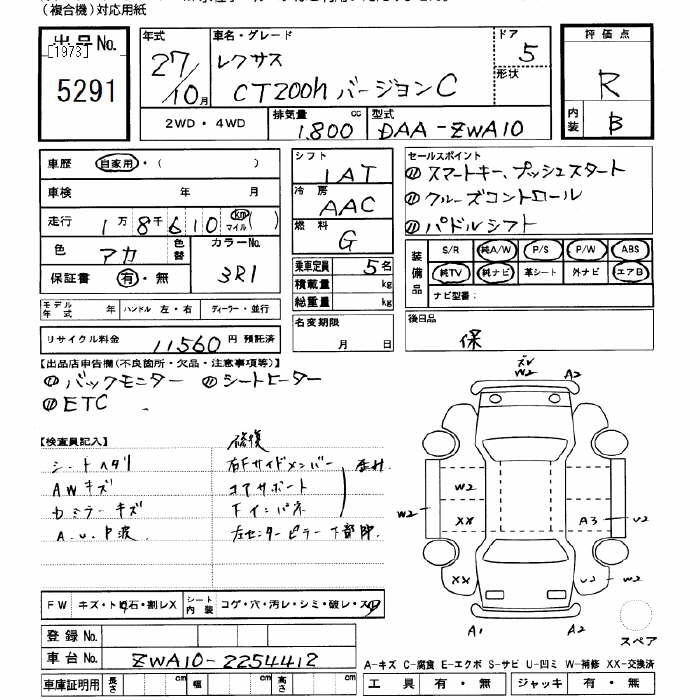 (複合機)対応用紙
出品No.
[1973]
5291
年式
27/10月
車名・グレード
レクサス
CT200h バージョンC
ドア
5
形状
評価点
R
内装
B
2WD・4WD
排気量
1.800 cc
型式
DAA-ZWA10
車歴 自家用・( )
車検 年 月
走行 1万8千610 km マイル( )
色 アカ 色替 カラーNo. 3R1
保証書 有・無
モデル年式 年 ハンドル 左・右 ディーラー・並行
リサイクル料金 11560円 預託済
シフト
1AT
冷房
AAC
燃料
G
乗車定員 5名
積載量 kg
総重量 kg
名変期限
月 日
セールスポイント
〃スマートキー、プッシュスタート
〃クルーズコントロール
〃パドルシフト
装備品
S/R 純A/W P/S P/W ABS
純TV 純ナビ 革シート 外ナビ エアB
ナビ型番:
後日品
保
【出品店申告欄(不良箇所・欠品・注意事項等)】
〃バックモニター 〃シートヒーター
〃ETC
【検査員記入】
シートヘタリ
AWキズ
ドミラーキズ
A.U.P波
修復
右Fサイドメンバー
コアサポート
Fインパネ
左センターピラー下部
W2
A2
W2
W2
XX
A3
U2
XX
U2
W2
A1
A2
スペア
FW キズ・ト石・割レX
シート内装 コゲ・穴・汚レ・シミ・破レ・スレ
登録No.
車台No. ZWA10-2254412
車庫証明用 長さ cm 幅 cm 高さ cm
A-キズ C-腐食 E-エクボ S-サビ U-凹ミ W-補修 XX-交換済
工具 有・無 ジャッキ 有・無